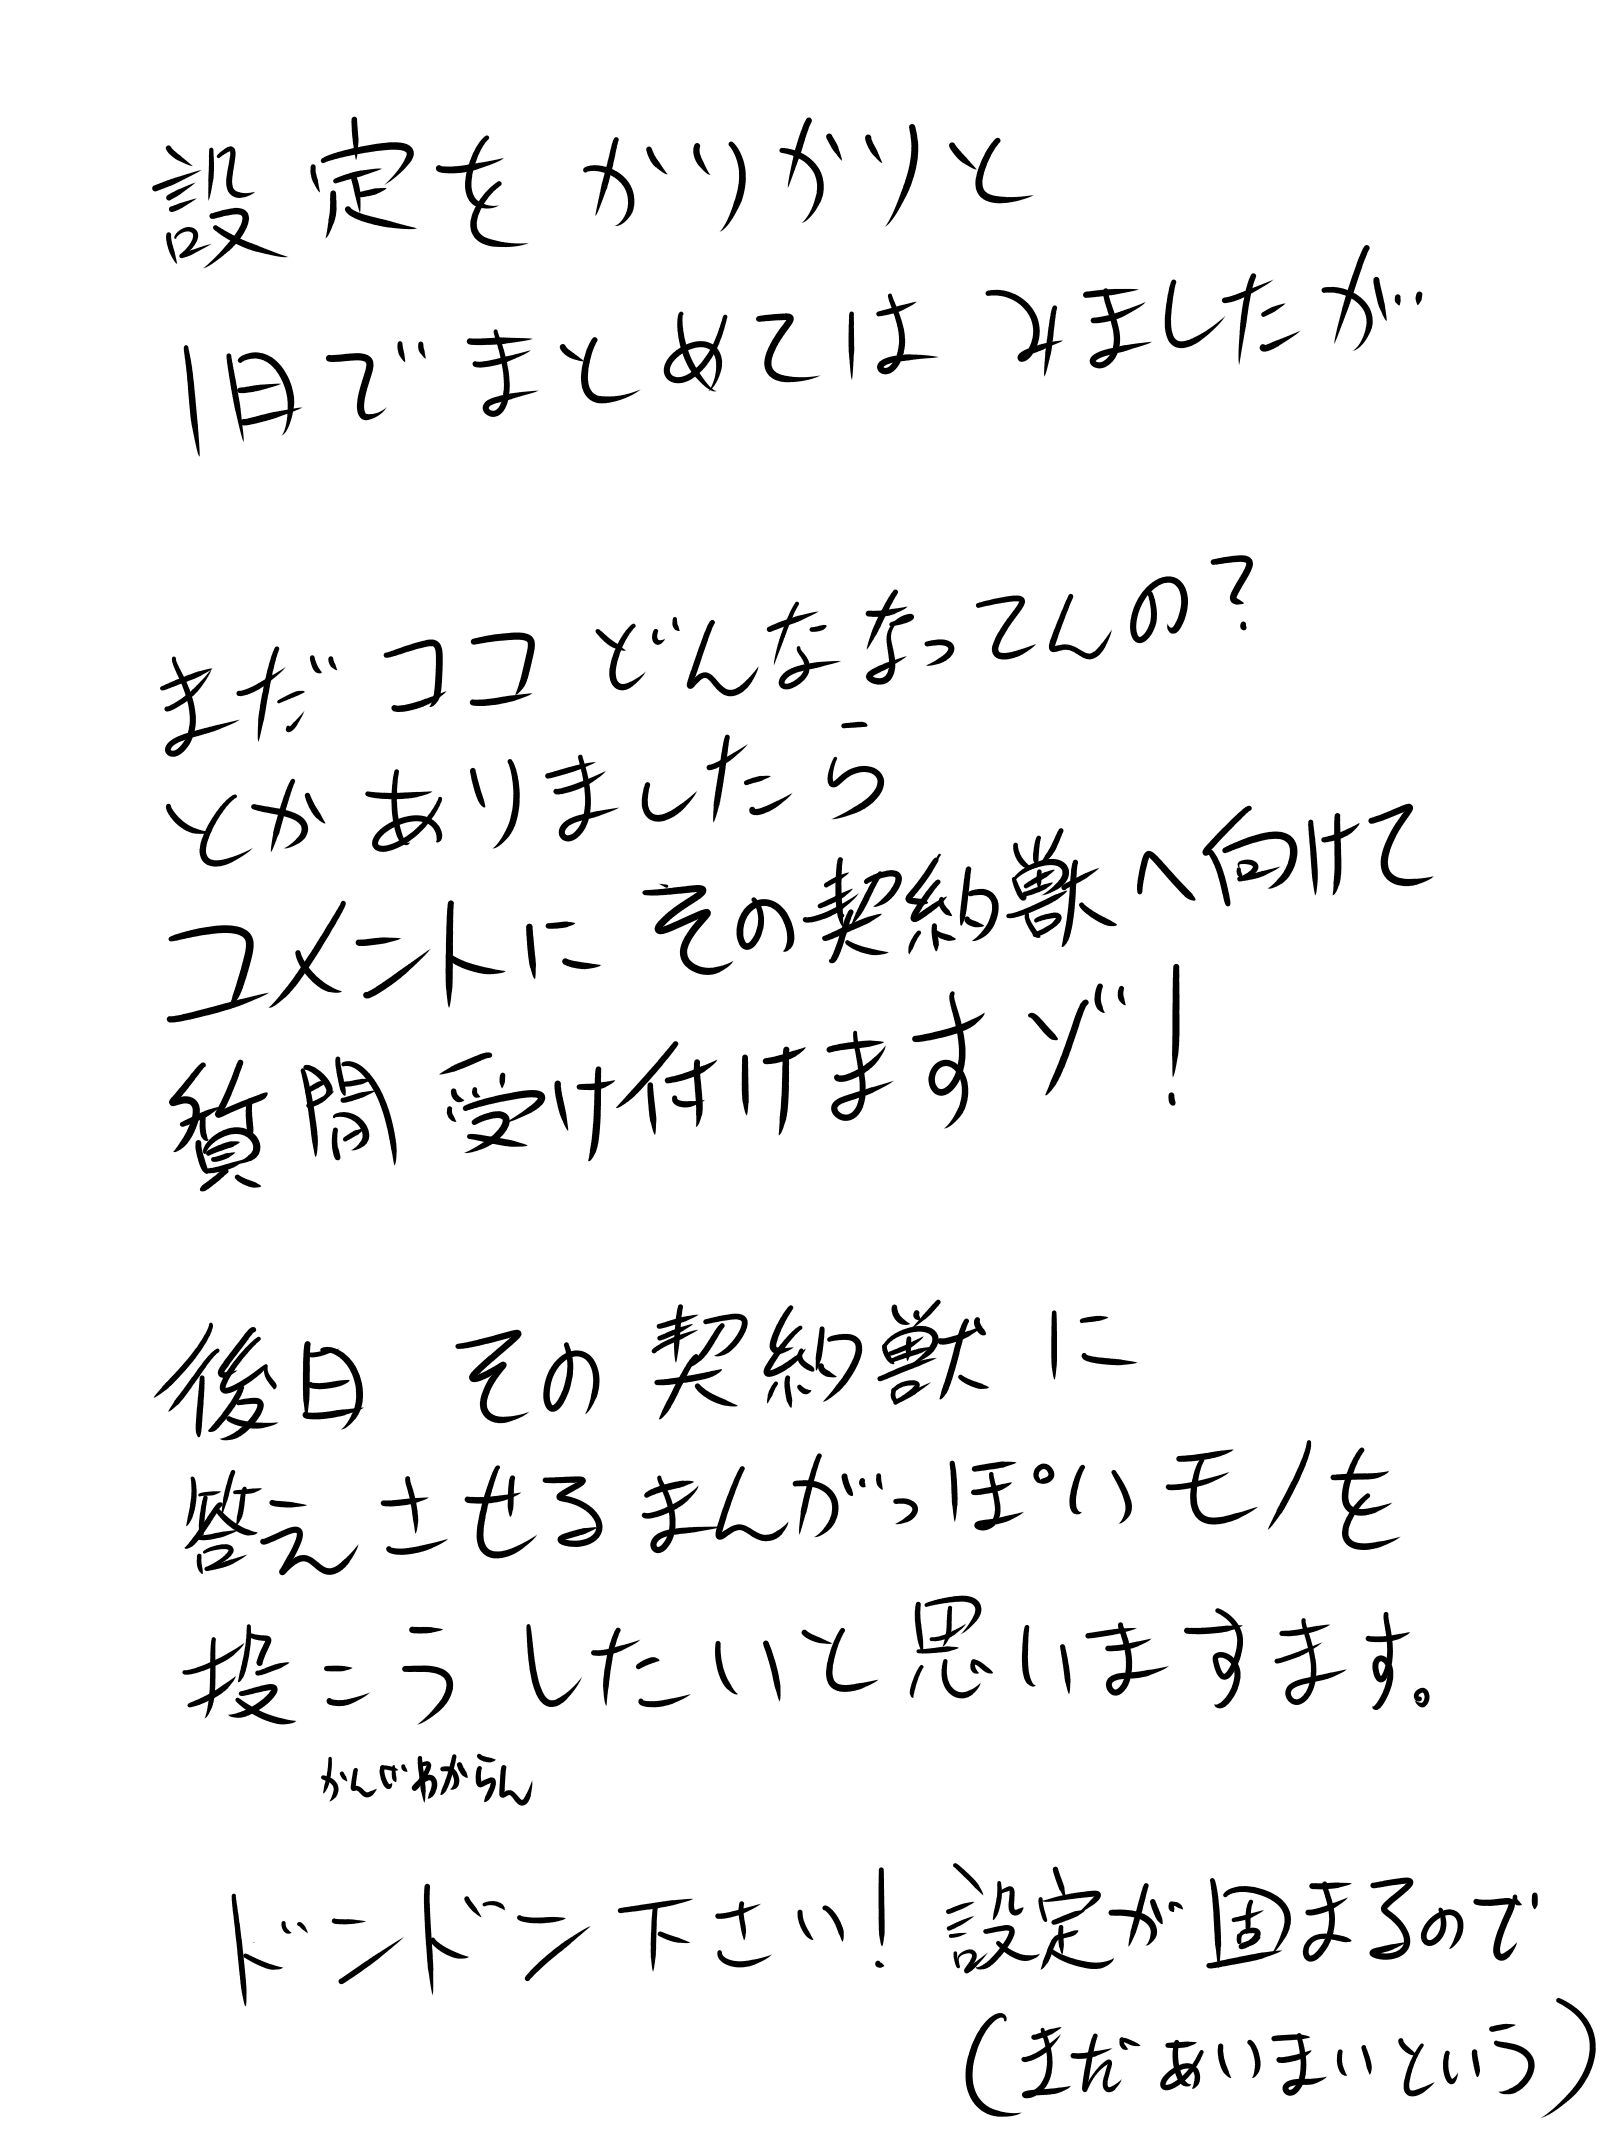 設定をカリカリと
1日でまとめてはみましたが
まだココどんななってんの?
とかありましたら
コメントにその契約獣へ向けて
質問受け付けますゾ!
後日その契約獣に
答えさせるまんがっぽいモノを
投こうしたいと思いますます。
かんじわからん
ドンドン下さい!設定が固まるので
(まだあいまいという)